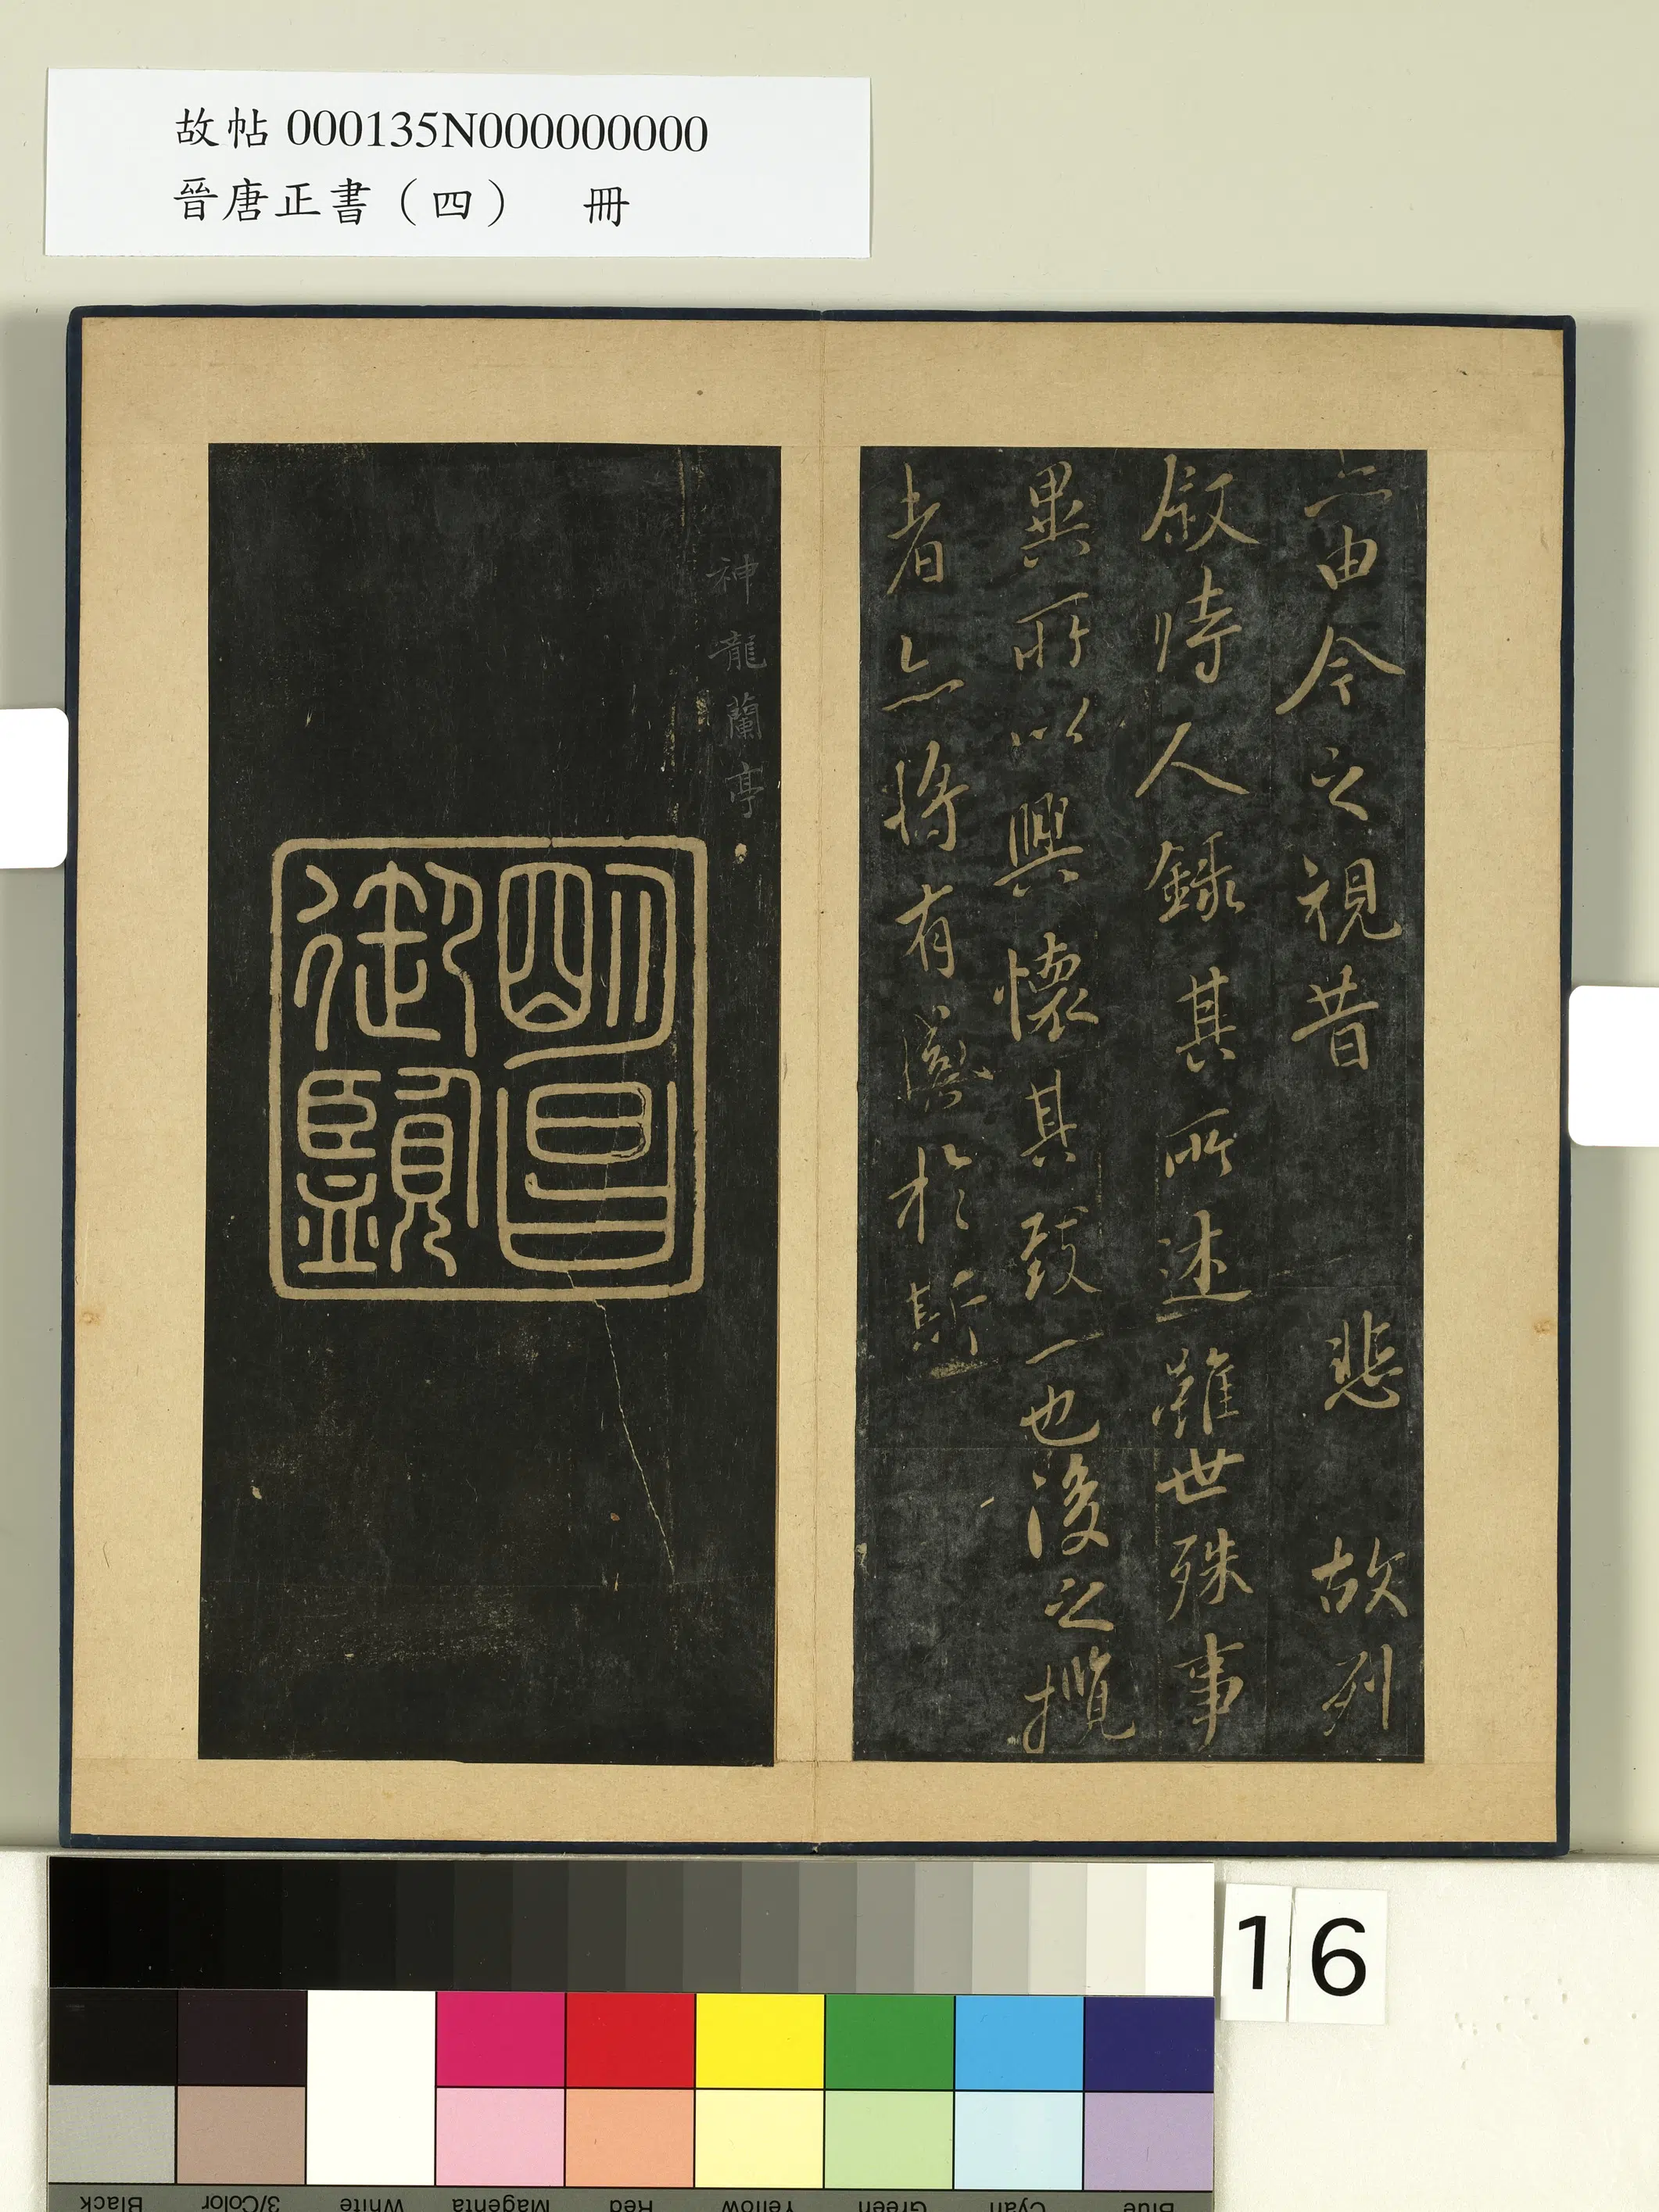 故帖 000135N000000000
晉唐正書（四） 冊
亦由今之視昔 悲 故列
敘時人錄其所述雖世殊事
異所以興懷其致一也後之攬
者亦將有於斯
神龍蘭亭
明昌
御覽
16
Blue Cyan Green Yellow Red Magenta White 3/Color Black